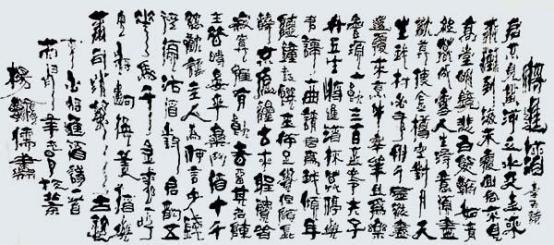 將進酒
君不見黃河之水天上來
奔流到海不復回君不見
高堂明鏡悲白髮朝如青
絲暮成雪人生得意須盡
歡莫使金樽空對月天
生我材必有用千金散盡
還復來烹羊宰牛且為樂
會須一飲三百杯岑夫子
丹丘生將進酒杯莫停與
君歌一曲請君為我傾耳
聽鐘鼓饌玉不足貴但願長
醉不願醒古來聖賢皆
寂寞惟有飲者留其名陳
王昔時宴平樂斗酒十千
恣歡謔主人為何言少錢
徑須沽酒對君酌五
花馬千金裘呼
兒將出換美酒與
爾同銷萬古愁
李白將進酒詩一首
楊